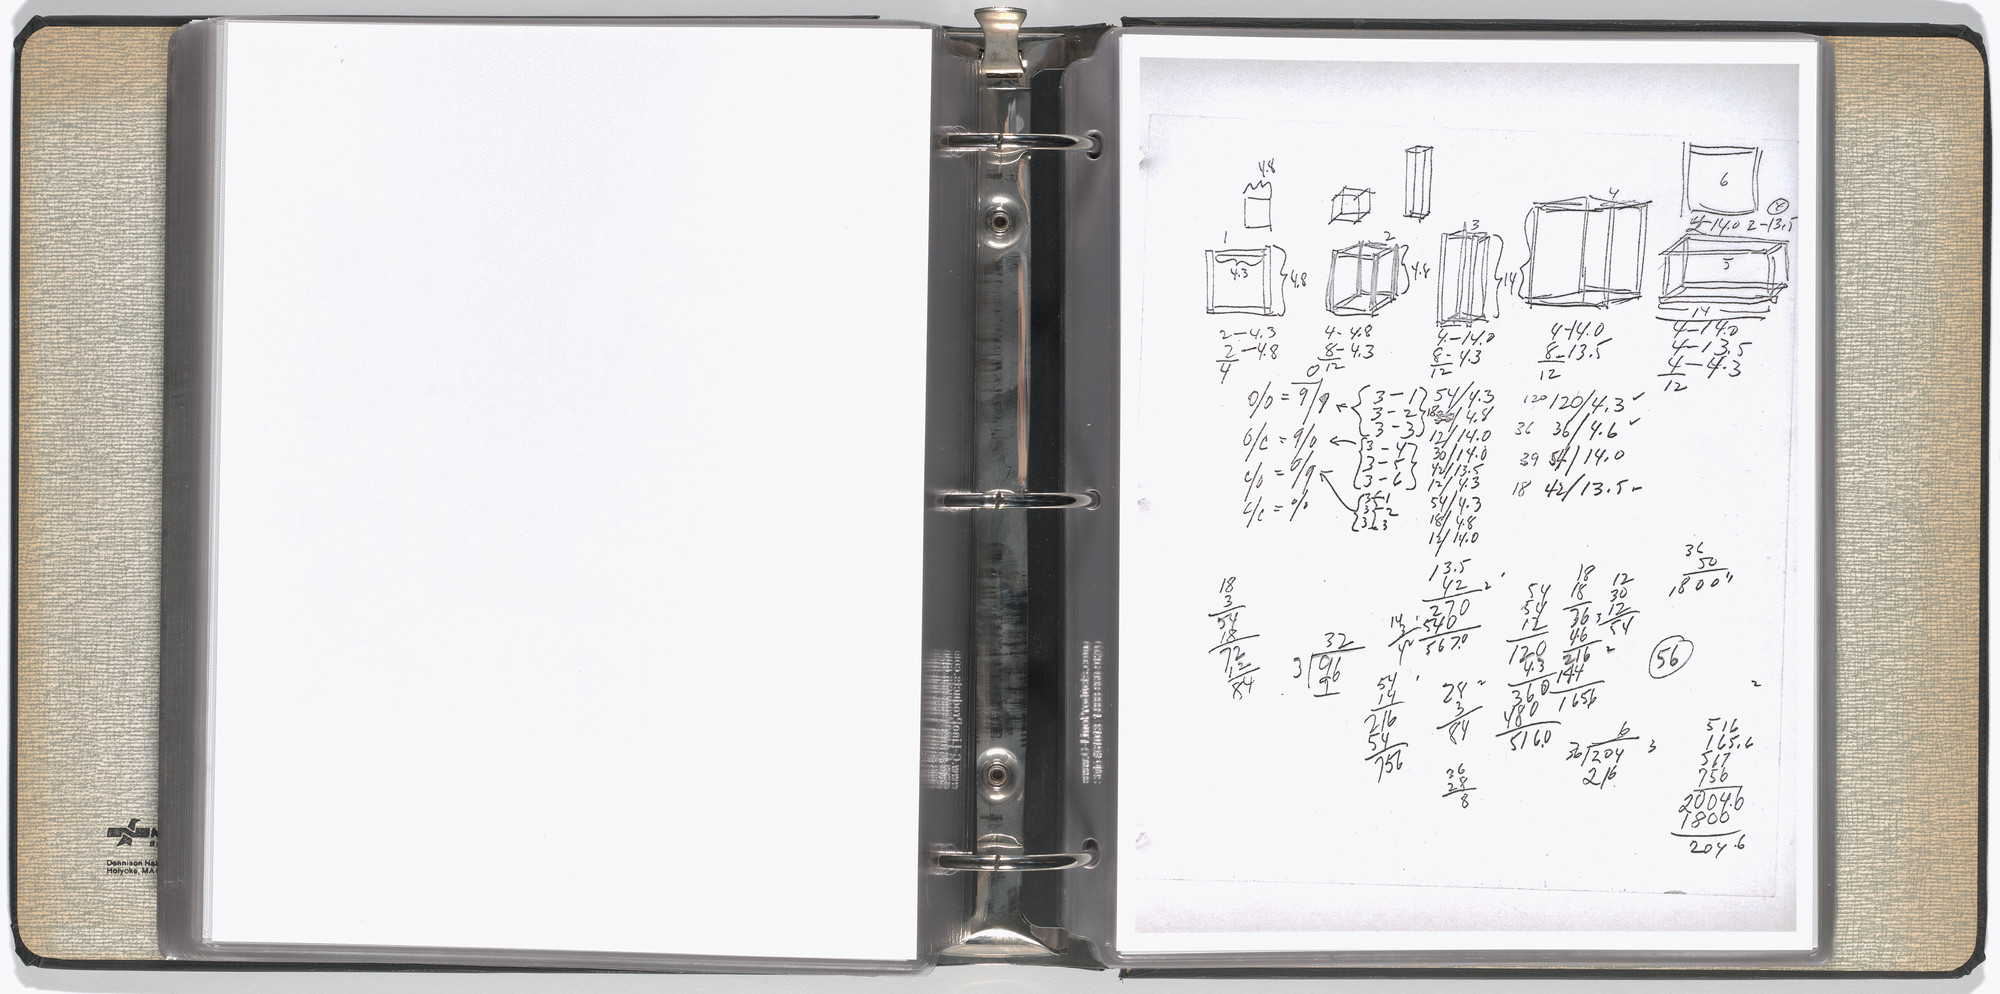 4.8
6
4
4
4-14.0 2-13.5
1
2
3
5
4.3
4.8
4.8
14
14
2-4.3
2-4.8
4
4-4.8
8-4.3
12
4-14.0
8-4.3
12
4-14.0
8-13.5
12
4-14.0
4-13.5
4-4.3
12
0/0 = 9/9
0/c = 9/0
c/0 = 0/9
c/c = 0/0
3-1
3-2
3-3
3-4
3-5
3-6
3-1
3-2
3-3
54/4.3
18/4.8
12/14.0
30/14.0
42/13.5
12/4.3
54/4.3
18/4.8
12/14.0
120 120/4.3 ✓
36 36/4.6 ✓
39 54/14.0
18 42/13.5
18
3
54
18
72
12
84
32
3 96
9
13.5
42
270
540
567.0
54
14
216
54
756
28
3
84
36
28
8
54
54
12
120
4.3
360
480
516.0
18
18
36
46
216
144
1656
12
30
12
54
36
50
1800"
56
6
36 204
216
3
516
165.6
567
756
2004.6
1800
204.6
Dennison Na
Holyoke, MA